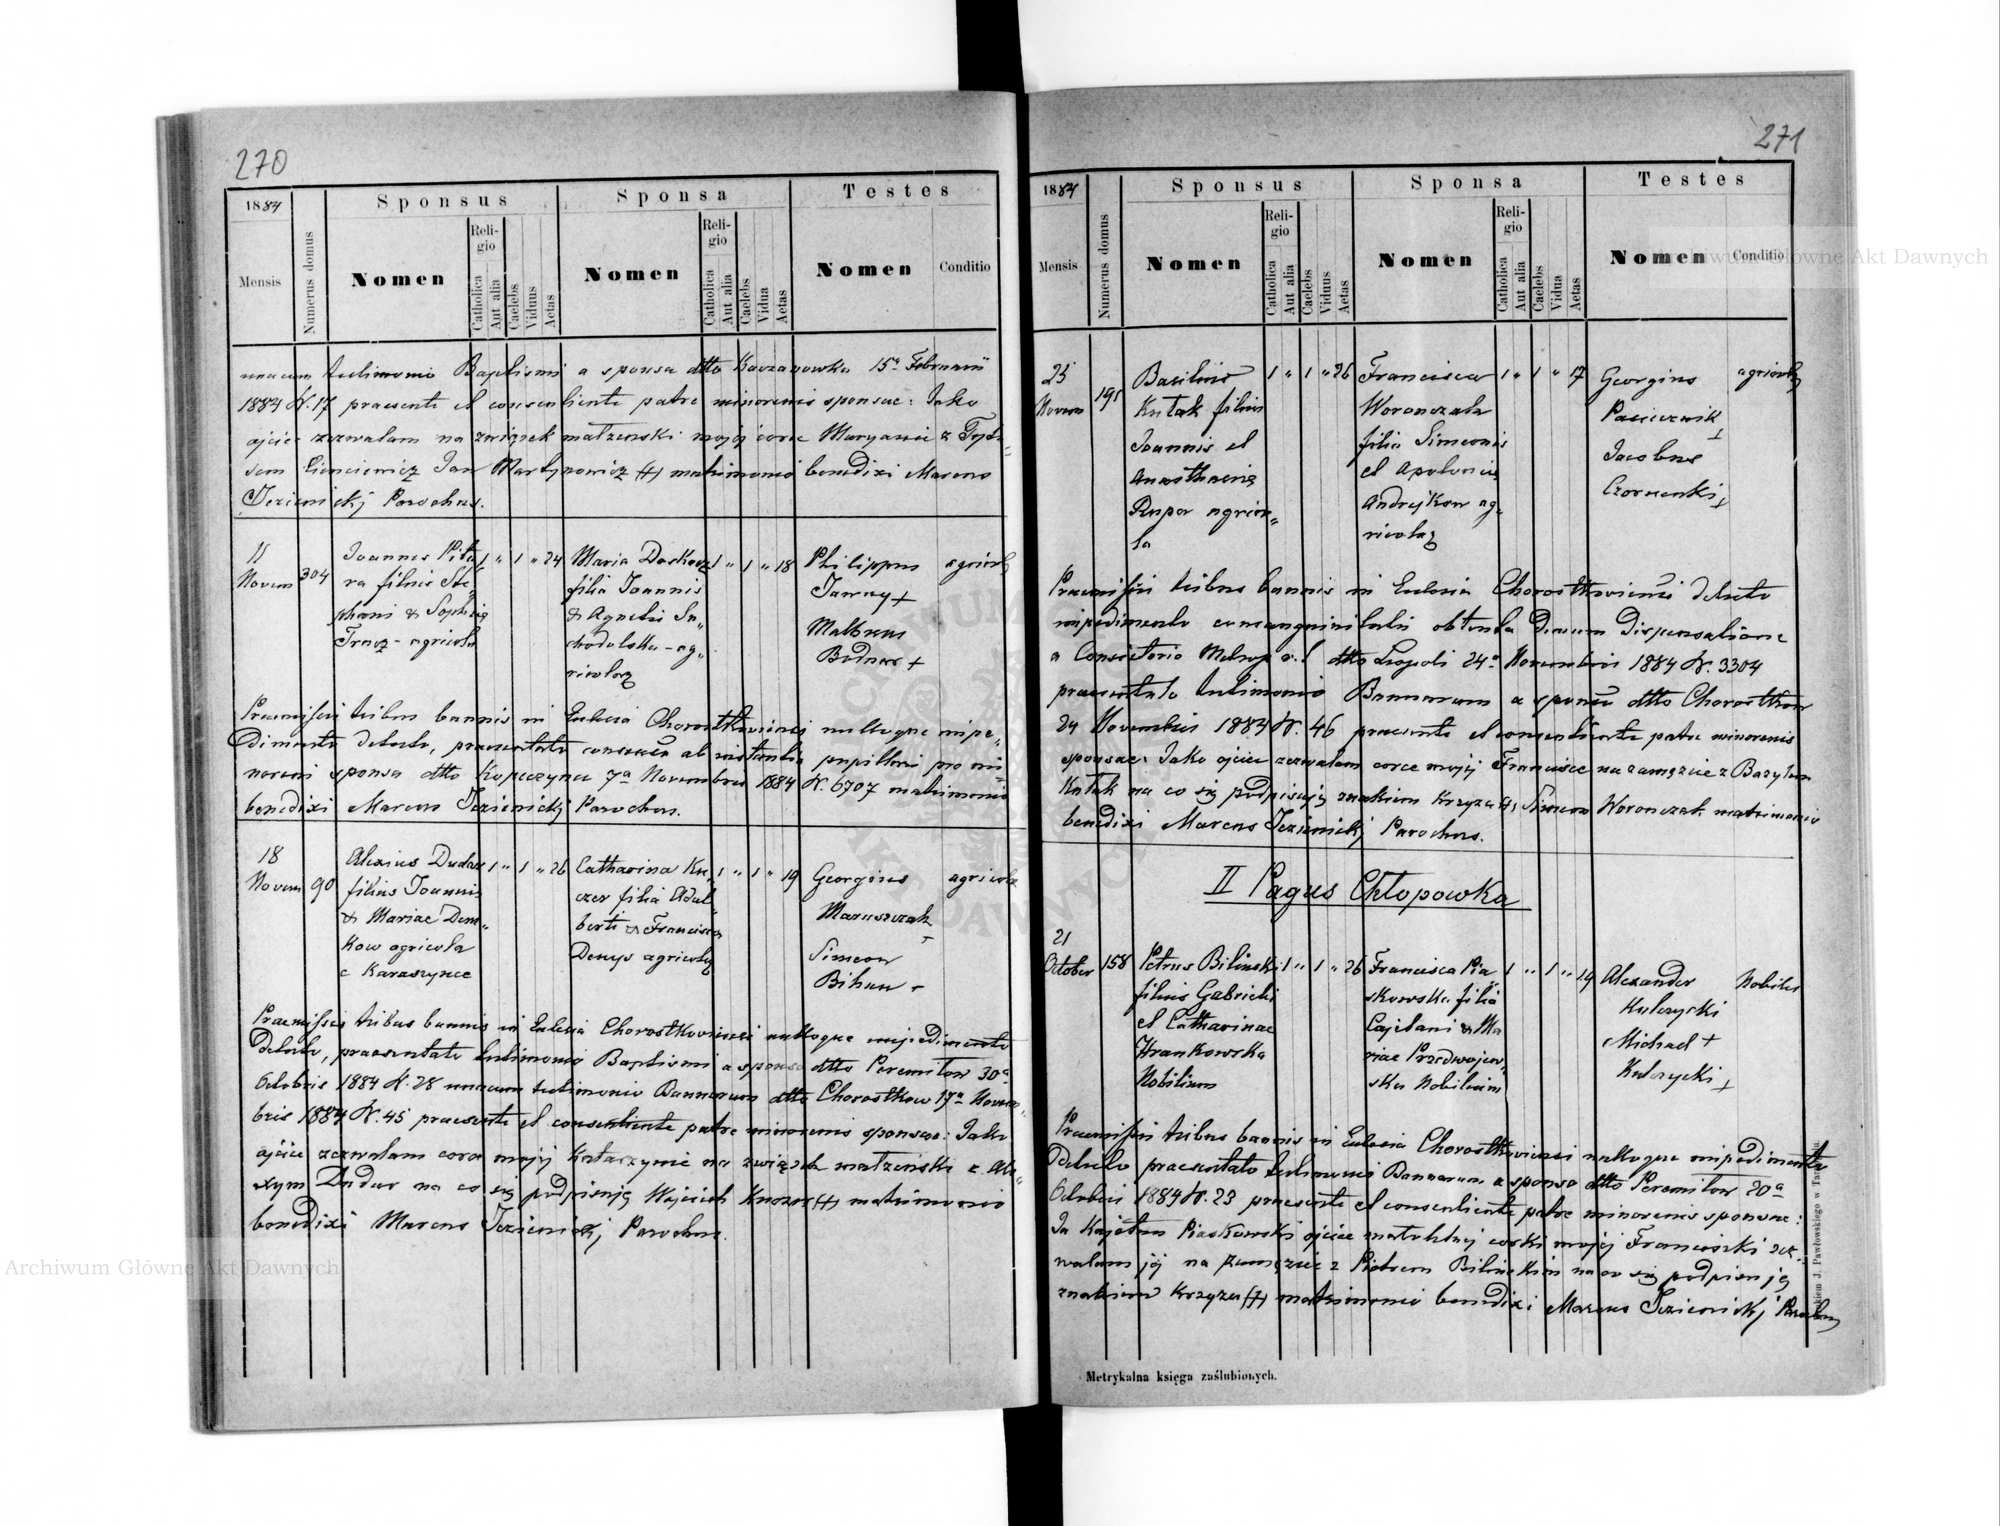 270
1884
Mensis
Numerus domus
Sponsus
Sponsa
Testes
Nomen
Religio
Catholica
Aut alia
Caelebs
Viduus
Aetas
Nomen
Religio
Catholica
Aut alia
Caelebs
Vidua
Aetas
Nomen
Conditio
unacum testimonio Baptismi a sponsa dtto Kaczanowka 15a Februarii
1884 N. 17 praesente et consentiente patre minorenis sponsae: Jako
ojciec zezwalam na związek małżenski mojej corce Maryannie z
Jan Martynowicz (+) matrimonio benedixi Marcus
Jezienickj Parochus.
11
Novem
304
Joannes Pitu
ra filius Ste
phani & Sophiae
Tracz - agricola
1 " 1 " 24
Maria
filia Joannis
& Agnetis Su„
chodolska - ag„
ricolae
1 " 1 " 18
Philippus
Jarny +
Mathaeus
Bodnar +
agricolae
Praemissis tribus bannis in Eclesia Chorostkoviensi nulloque impe„
dimento detecto, praesentato consensu ab instantia pupillari pro mi„
noreni sponsa dtto Kopeczynce 7a Novembris 1884 N. 6707 matrimonio
benedixi Marcus Jezienickj Parochus.
18
Novem
90
Alexius Dudar
filius Joannis
& Mariae Dem„
kow agricola
e Karaszynce
1 " 1 " 26
Catharina Ku„
czer filia Adal„
berti & Francisca
Denys agricolae
1 " 1 " 19
Georgius
Maruszczak
+
Simeon
Bihun +
agricolae
Praemissis tribus bannis in Eclesia Chorostkoviensi nulloque impedimento
detecto, praesentato testimonio Baptismi a sponso dtto Peremilow 30a
Octobris 1884 N. 28 unacum testimonio Bannorum dtto Chorostkow 17a Novem„
bris 1884 N. 45 praesente et consentiente patre minorenis sponsae: Jako
ojciec zezwalam corce mojej Katarzynie na związek małżeński z Ale„
xym Dudar na co się podpisuję Wojciech Kuczer (+) matrimonio
benedixi Marcus Jezienickj Parochus.
271
1884
Mensis
Numerus domus
Sponsus
Sponsa
Testes
Nomen
Religio
Catholica
Aut alia
Caelebs
Viduus
Aetas
Nomen
Religio
Catholica
Aut alia
Caelebs
Vidua
Aetas
Nomen
Conditio
25
Novem
195
Basilius
Kutak filius
Joannis et
Anasthasiae
Rupar agrico„
la
1 " 1 " 26
Francisca
Woronczak
filia Simeonis
et Apoloniae
Andrejkow ag„
ricolae
1 " 1 " 17
Georgius
Pasiecznik
+
Jacobus
Czornenki +
agricolae
Praemissis tribus bannis in Eclesia Chorostkoviensi detecto
impedimento consanguinitatis obtenta Dispensatione
a Consistorio Metrop. r. l. dtto Leopoli 24a Novembris 1884 N. 3304
praesentato testimonio Bannorum a sponso dtto Chorostkow
24 Novembris 1884 N. 46 praesente et consentiente patre minorenis
sponsae: Jako ojciec zezwalam corce mojej Francisce na zamęzcie z Bazylem
Kutak na co się podpisuję znakiem krzyza (+) Simeon Woronczak matrimonio
benedixi Marcus Jezienickj Parochus.
II Pagus Chłopowka
21
October
158
Petrus Bilinski
filius Gabrieli
et Catharinae
Hrankowska
Nobilium
1 " 1 " 26
Francisca Pia
skowska filia
Cajetani & Ma
riae Przedwojew„
ska Nobilium
1 " 1 " 19
Alexander
Kulczycki
Michael +
Kulczycki +
Nobiles
Praemissis tribus bannis in Eclesia Chorostkoviensi nulloque impedimento
detecto praesentato testimonio Bannorum a sponso dtto Peremilow 20a
Octobris 1884 N. 23 praesente et consentiente patre minorenis sponsae:
Ja Kajetan Piaskowski ojciec małoletniej corki mojej Franciszki zez„
walam jej na zamęzcie z Piotrem Bilinskim na co się podpisuję
znakiem krzyza (+) matrimonio benedixi Marcus Jezienickj Parochus
Metrykalna księga zaślubionych.
J. Pawłowskiego w
Archiwum Główne Akt Dawnych
Archiwum Główne Akt Dawnych